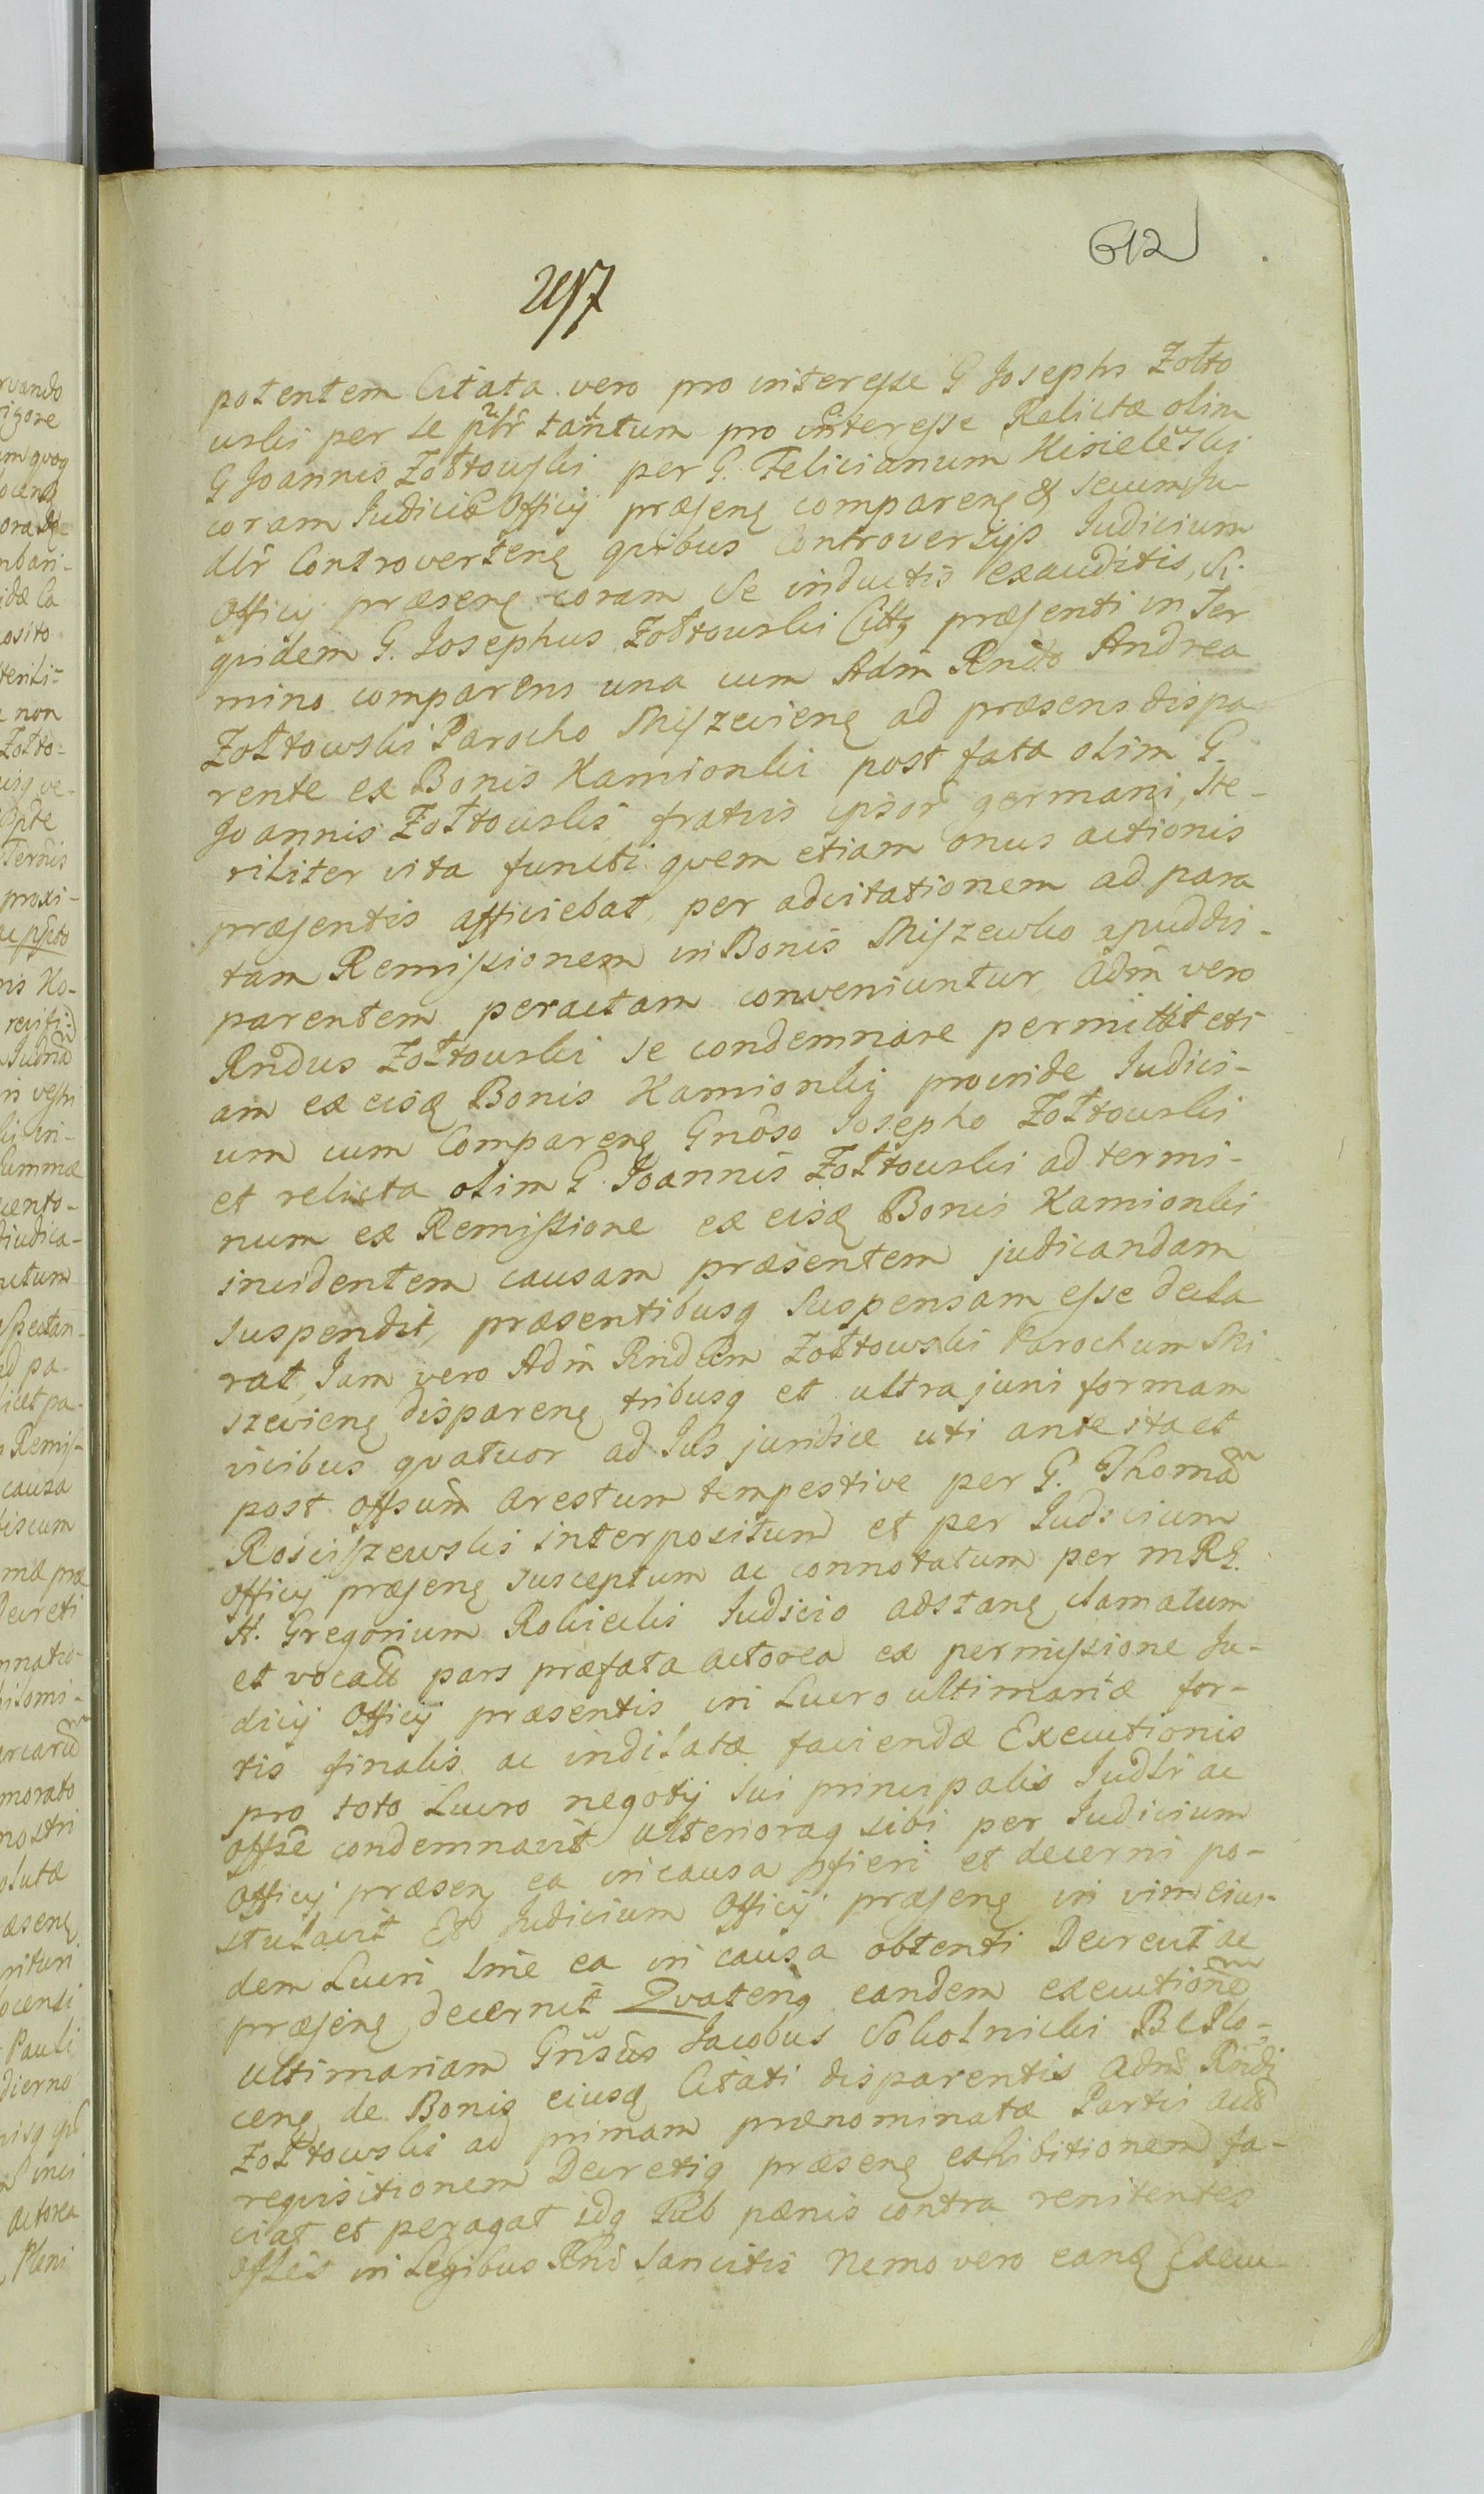 612
297
potentem Citata vero pro interesse G Josephi Zołto
wski per se pstr tantum pro interesse Relictæ olim
G Joannis Zołtowski per G. Felicianum Kisieleski
coram Judicio Officij præsenę comparenę & secum Ju
dlr Controvertenę quibus Controversijs Judicium
Officij præsenę coram se inductis exauditis, Si
quidem G. Josephus Zołtowski Cittę præsenti in Ter
mino comparens una cum Adm Rndo Andrea
Zołtowski Parocho Miszewienę ad præsens dispa
rente ex Bonis Kamionki post fata olim G.
Joannis Zołtowski fratris ipsor germani, Ste-
riliter vita functi quem etiam onus actionis
præsentis afficiebat, per adcitationem ad para
tam Remissionem in Bonis Miszewko apud dis-
parentem peractam conveniuntur, Adm vero
Rndus Zołtowski se condemnare permittit eti
am ex eisdę Bonis Kamionki, proinde Judici-
um cum Comparenę Gnoso Josepho Zołtowski
et relicta olim G. Joannis Zołtowski ad termi-
num ex Remissione ex eisdę Bonis Kamionki
incidentem causam præsentem judicandam
suspendit, præsentibusq suspensam esse decla
rat, Jam vero Adm Rndum Zołtowski Parochum Mi
szewienę disparenę tribusq et ultra juni formam
vicibus quatuor ad Jus juridice uti ante ita et
post offsum Arestum tempestive per G. Thomam
Rosciszewski interpositum et per Judicium
Officij præsenę susceptum ac connotatum per mRE.
H. Gregorium Rokicki Judicio adstanę clamatum
et vocatū pars præfata actorea ex permissione Ju-
dicij Officij præsentis in Lucro ultimariæ for-
tis finalis ac indilatæ faciendæ Executionis
pro toto Lucro negotij sui principalis Judlr ac
offse condemnavit ulterioraq sibi per Judicium
Officij præsenę ea in causa fieri et decerni po-
stulavit Et Judicium Officij præsenę in vim eius-
dem Lucri Sine ea in causa obtenti Decreut ac
præsenę decernit Quatenę eandem executionem
ultimariam Gnsus Jacobus Sokolnicki BCPlo-
cenę de Bonis eiusdę Citati disparentis Adm Rndi
Zołtowski ad primam prænominatæ Partis Acto
requisitionem Decretiq præsenę exhibitionem fa-
ciat et peragat idq sub pænis contra renitentes
offles in Legibus Rni sancitis Nemo vero eandę Execu-